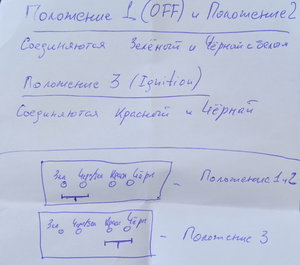 Положение 1 (OFF) и Положение 2
Соединяются Зелёный и Чёрный с белом
Положение 3 (Ignition)
Соединяются Красный и Чёрный
Зел Черн/Бел Красн Чёрн
— Положение 1 и 2
Зел Черн/Бел Красн Чёрн
— Положение 3